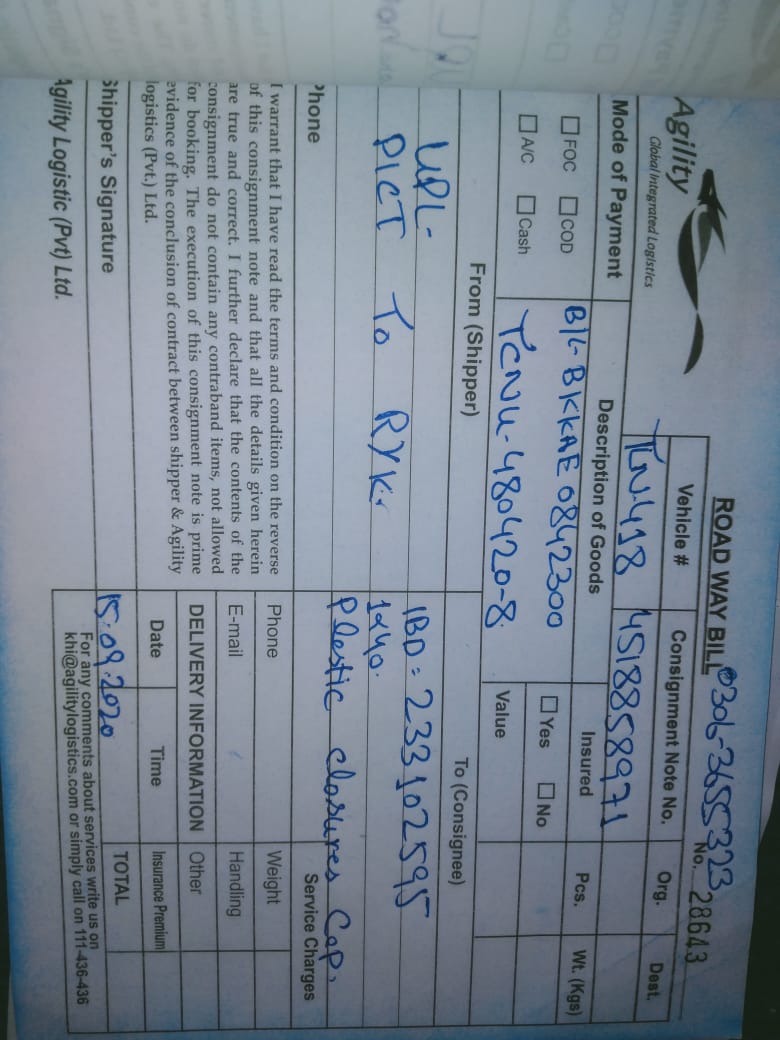 Agility
Global Integrated Logistics
ROAD WAY BILL 0306-3655323
No. 28643
Vehicle # Consignment Note No. Org. Dest.
TLN-418 4518858971
Mode of Payment Description of Goods Insured Pcs. Wt. (Kgs)
FOC COD B/L- BKKAE 0842300 Yes No
A/C Cash TCNU-480420-8 Value
From (Shipper) To (Consignee)
UPL- IBD = 233102595
PICT To RYK. 1x40.
Plestic closures Cap.
Phone Service Charges
I warrant that I have read the terms and condition on the reverse
of this consignment note and that all the details given herein
are true and correct. I further declare that the contents of the
consignment do not contain any contraband items, not allowed
for booking. The execution of this consignment note is prime
evidence of the conclusion of contract between shipper & Agility
logistics (Pvt.) Ltd.
Phone Weight
E-mail Handling
DELIVERY INFORMATION Other
Date Time Insurance Premium
Shipper's Signature 15.09.2020 TOTAL
Agility Logistic (Pvt) Ltd.
For any comments about services write us on
khi@agilitylogistics.com or simply call on 111-436-436